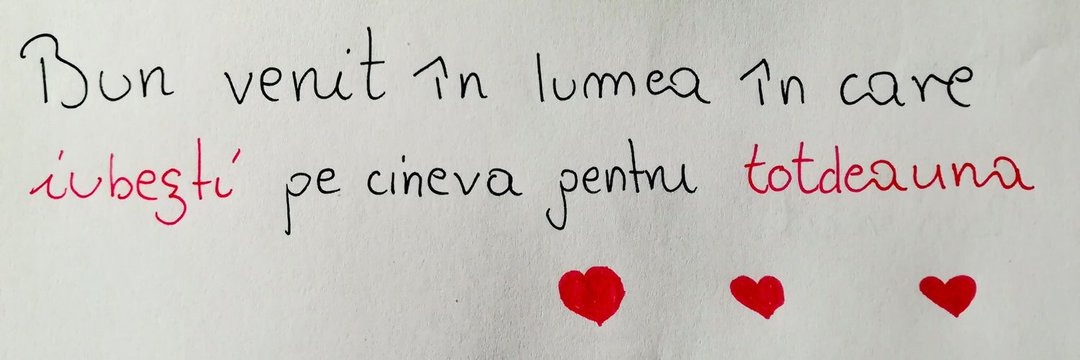 Bun venit în lumea în care
iubești pe cineva pentru totdeauna